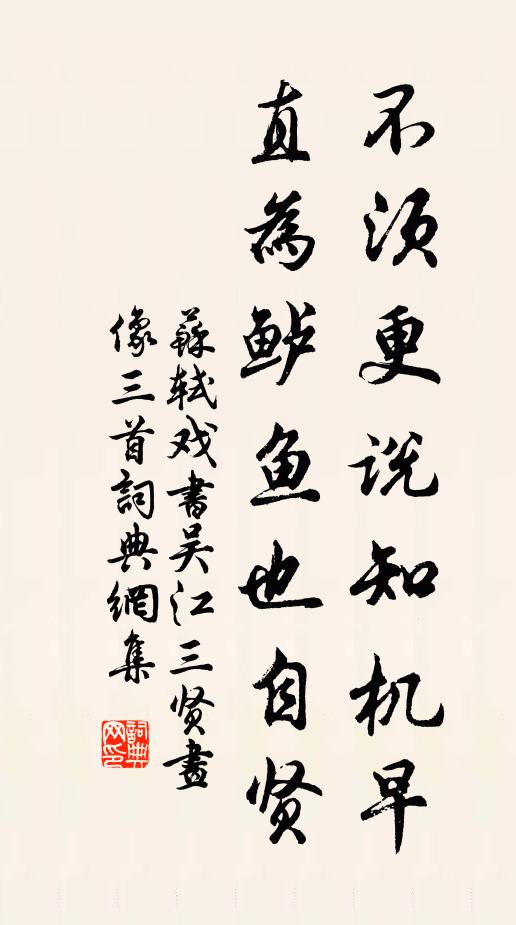 不须更说知机早
直為鲈鱼也自贤
蘇轼戏書吴江三贤畫
像三首詞典網集
詞典
网印